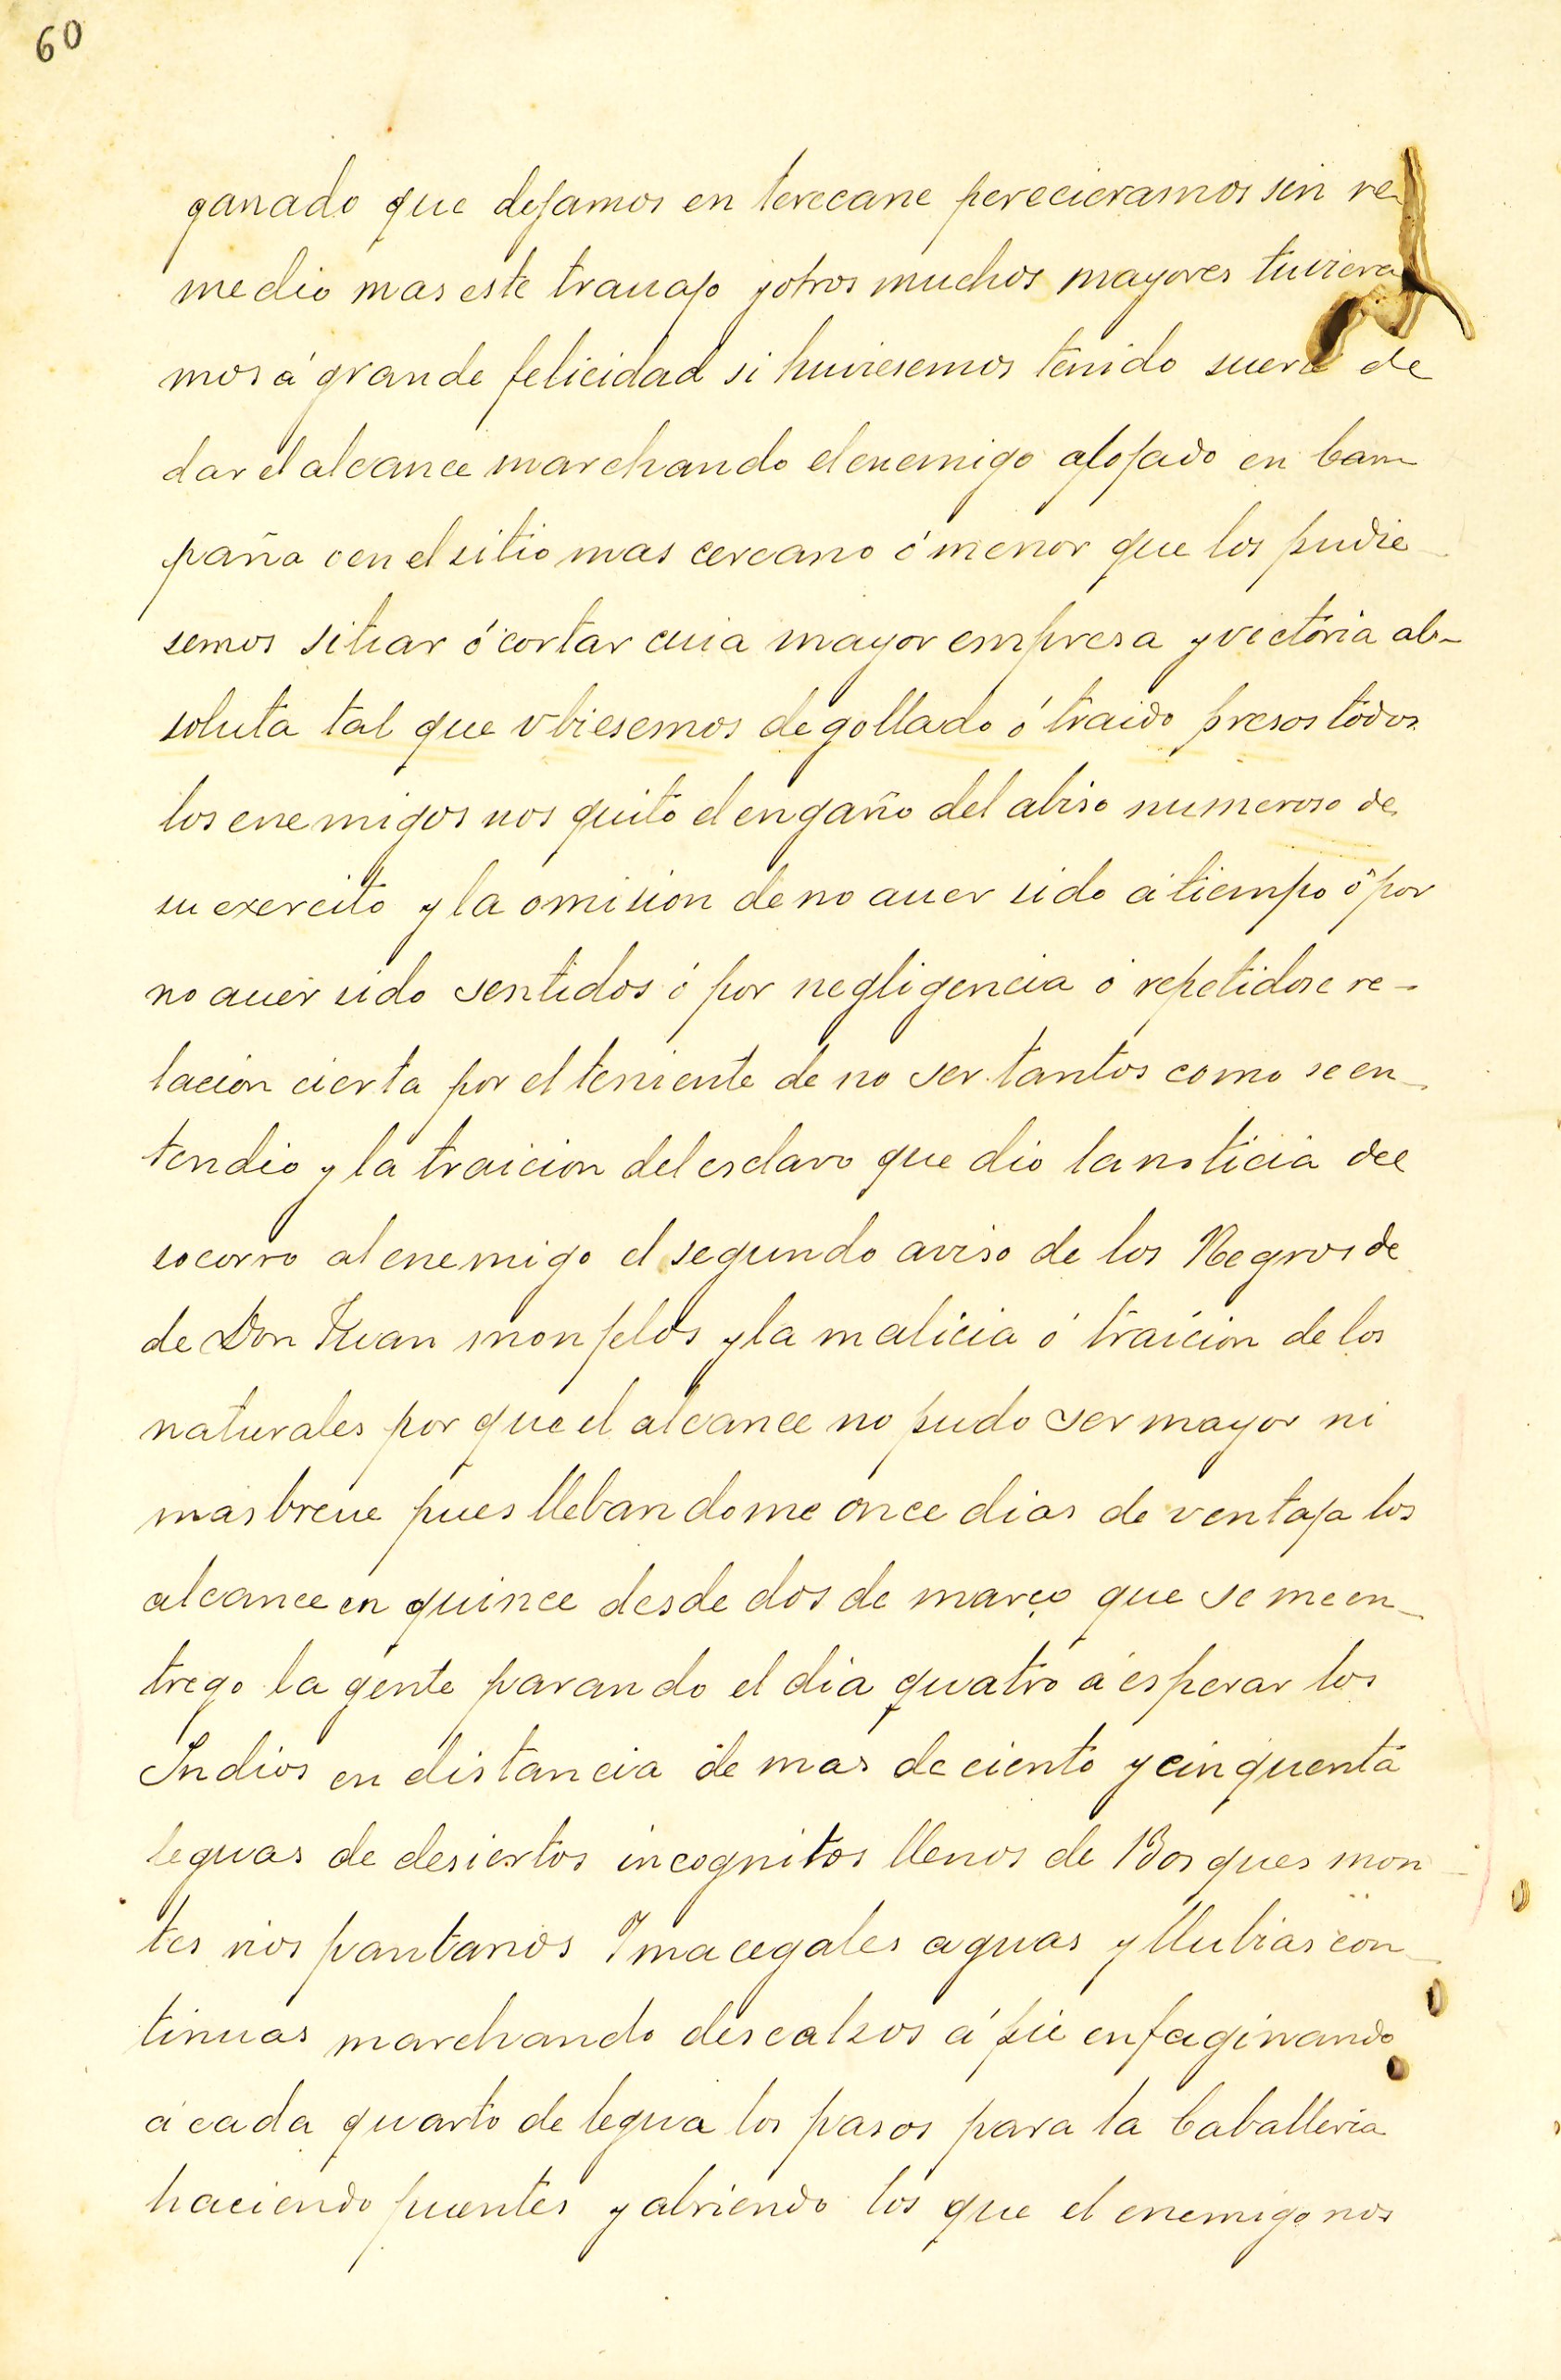 60
ganado que dejamos en terecane pereciéramos sin re-
medio mas este trauajo y otros muchos mayores tuviera
mos á grande felicidad si huviesemos tenido suerte de
dar el alcance marchando el enemigo alojado en Cam
paña o en el sitio mas cercano ó menor que los pudie-
semos sitiar ó cortar cuia mayor empresa y victoria ab-
soluta tal que vbiesemos degollado ó traido presos todos
los enemigos nos quito el engaño del abiso numeroso de
su exercito y la omision de no auer sido á tiempo ó por
no auer sido sentidos ó por negligencia ó repetidose re-
lacion cierta por el teniente de no ser tantos como se en-
tendio y la traicion del esclavo que dio la noticia del
socorro al enemigo el segundo aviso de los Negros de
de Don Juan monjelos y la malicia ó traicion de los
naturales por que el alcance no pudo ser mayor ni
mas breue pues llebandome once dias de ventaja los
alcance en quince desde dos de março que se me en-
trego la gente parando el dia quatro á esperar los
Indios en distancia de mas de ciento y cinquenta
leguas de desiertos incognitos llenos de Bosques mon-
tes rios pantanos I macegales aguas y llubias con-
tinuas marchando descalsos á pie enfaginando
á cada quarto de legua los pasos para la Caballeria
haciendo puentes y abriendo los que el enemigo nos